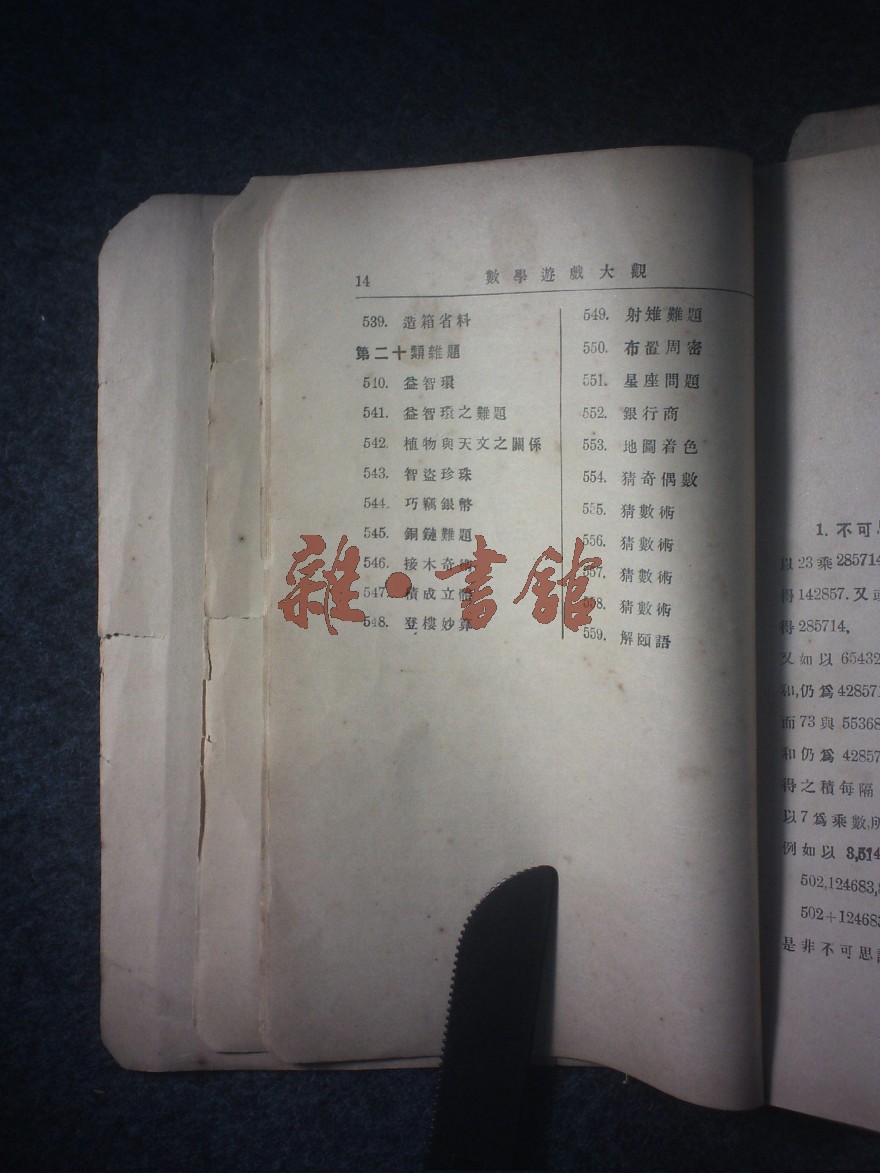 14 數學遊戲大觀
539. 造箱省料
第二十類雜題
540. 益智環
541. 益智環之難題
542. 植物與天文之關係
543. 智盜珍珠
544. 巧竊銀幣
545. 銅鏈難題
546. 接木奇
547. 積成立
548. 登樓妙算
549. 射雉難題
550. 布置周密
551. 星座問題
552. 銀行商
553. 地圖着色
554. 猜奇偶數
555. 猜數術
556. 猜數術
557. 猜數術
558. 猜數術
559. 解頤語
雜·書館
1. 不可
以23乘285714
得142857.又
得285714,
又如以65432
和,仍爲428571
而73與55368
和仍爲42857
得之積每隔
以7爲乘數,所
例如以3,514
502,124683,
502+124683
是非不可思